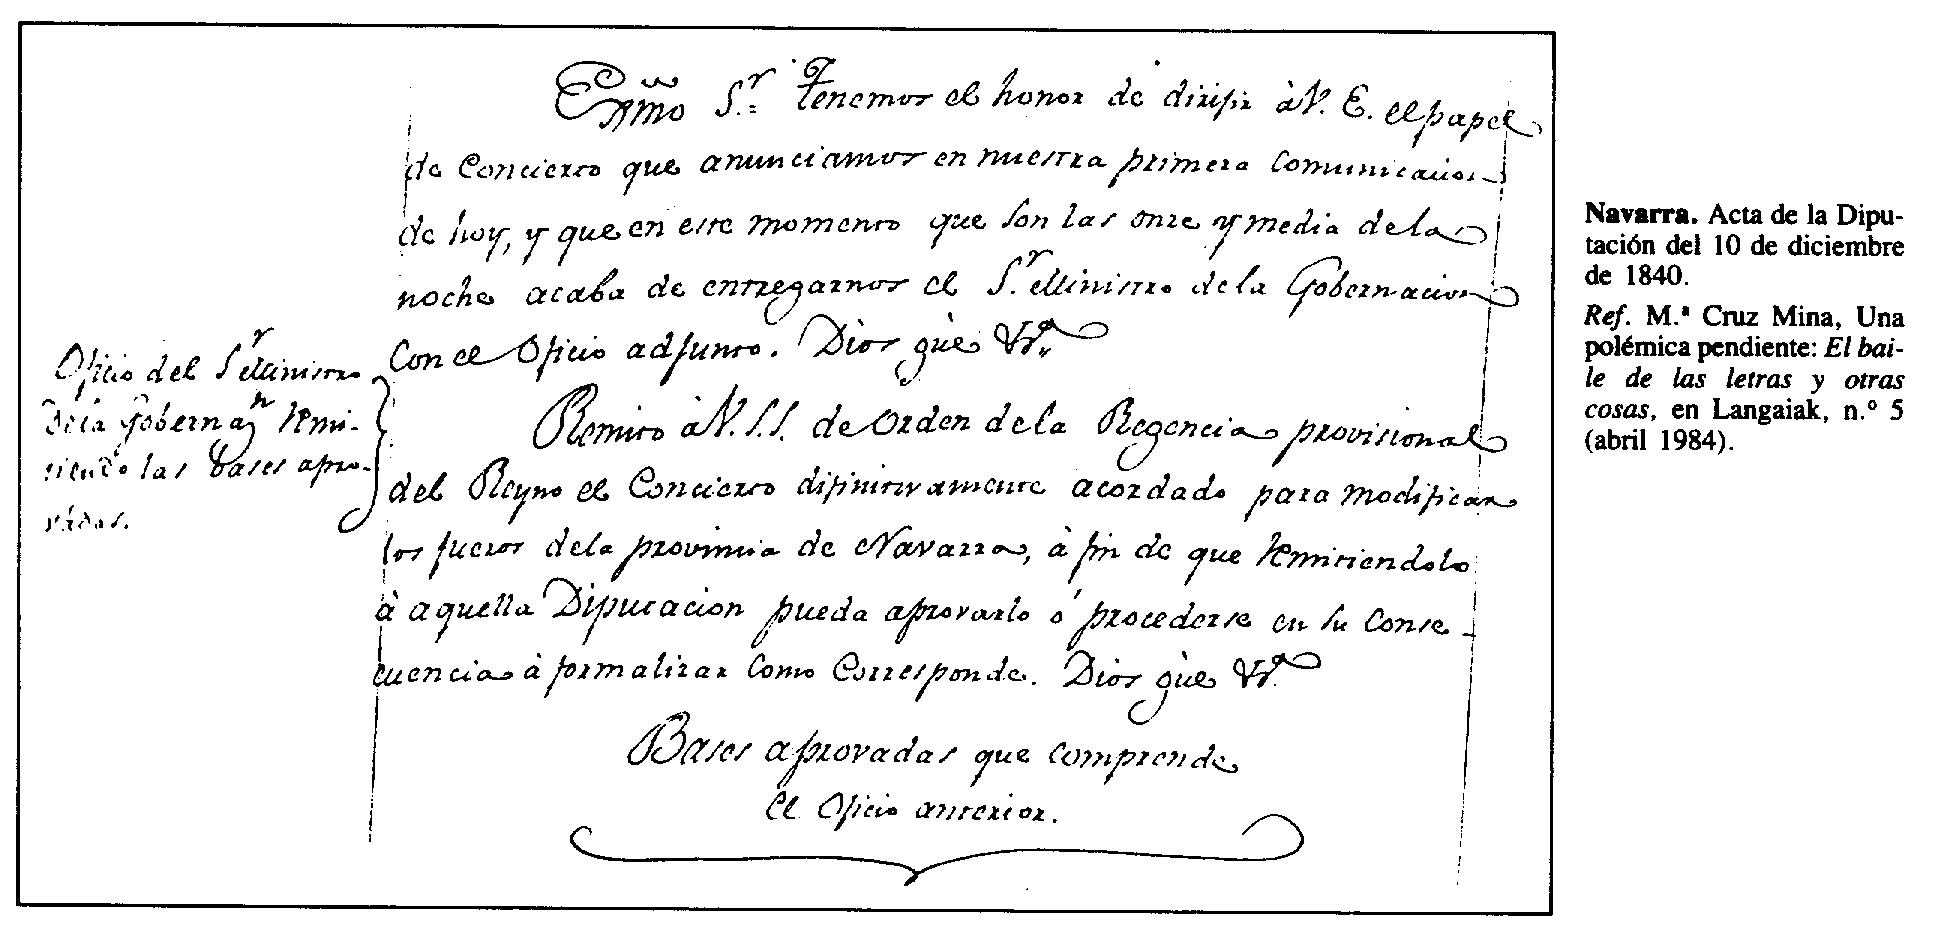 Exmo Sr. Tenemos el honor de dirifir à V. E. el papel
de Concierto que anunciamos en nuestra primera comunicacion
de hoy, y que en este momento que son las onze y media de la
noche acaba de entregarnos el Sr. Ministro de la Gobernacion
con el Oficio adjunto. Dios güe Vª.
Oficio del Sr Ministro
De la Gobernan remi-
tiendo las bases apro-
vadas.
Remito à V.S.S. de Orden de la Regencia provisional
del Reyno el Concierto difinitivamente acordado para modificar
los fueros de la provincia de Navarra, à fin de que remitiendolo
à aquella Diputacion pueda aprovarlo ó procederse en su Conse-
cuencia à formalizar como Corresponde. Dios güe Vª.
Bases aprovadas que comprende
el Oficio anterior.
Navarra. Acta de la Dipu-
tación del 10 de diciembre
de 1840.
Ref. M.ª Cruz Mina, Una
polémica pendiente: El bai-
le de las letras y otras
cosas, en Langaiak, n.º 5
(abril 1984).